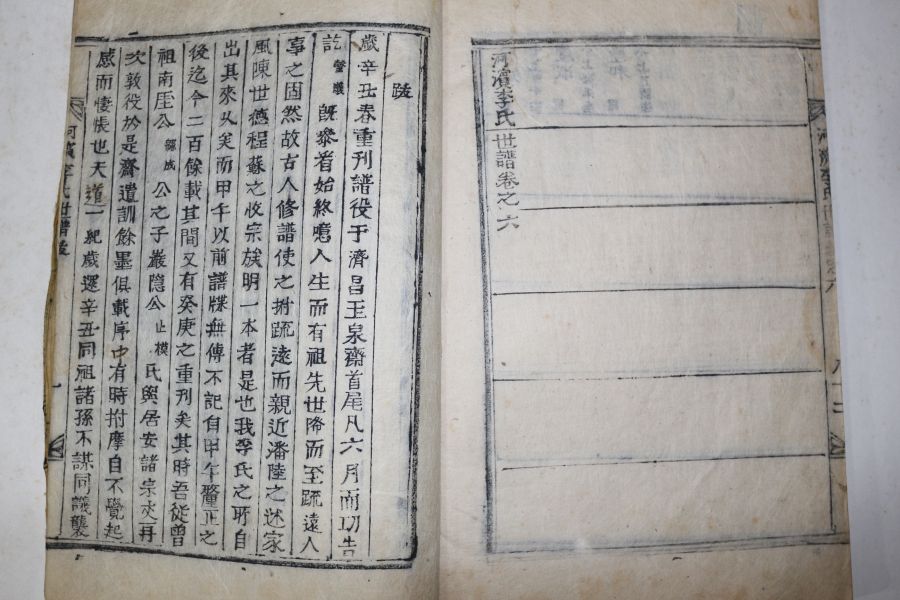 河濱李氏世譜卷之六
跋
歲辛丑春重刊譜役于濟昌玉泉齋首尾凡六月而功告
訖 旣黍着始終噫人生而有祖先世降而至疏遠人
事之固然故古人修譜使之拊疏遠而親近潘陸之述家
風陳世德程蘇之收宗族明一本者是也我李氏之所自
出其來久矣而甲午以前譜牒無傳不記自甲午釐正之
後迄今二百餘載其間又有癸庚之重刊矣其時吾從曾
祖南厓公 錫成 公之子巖隱公 止模 氏與居安諸宗夾再
次敦役於是齋遺訓餘墨俱載序中有時拊摩自不覺起
感而悽悵也天道一紀歲還辛丑同祖諸孫不謀同議襲
河濱李氏世譜跋